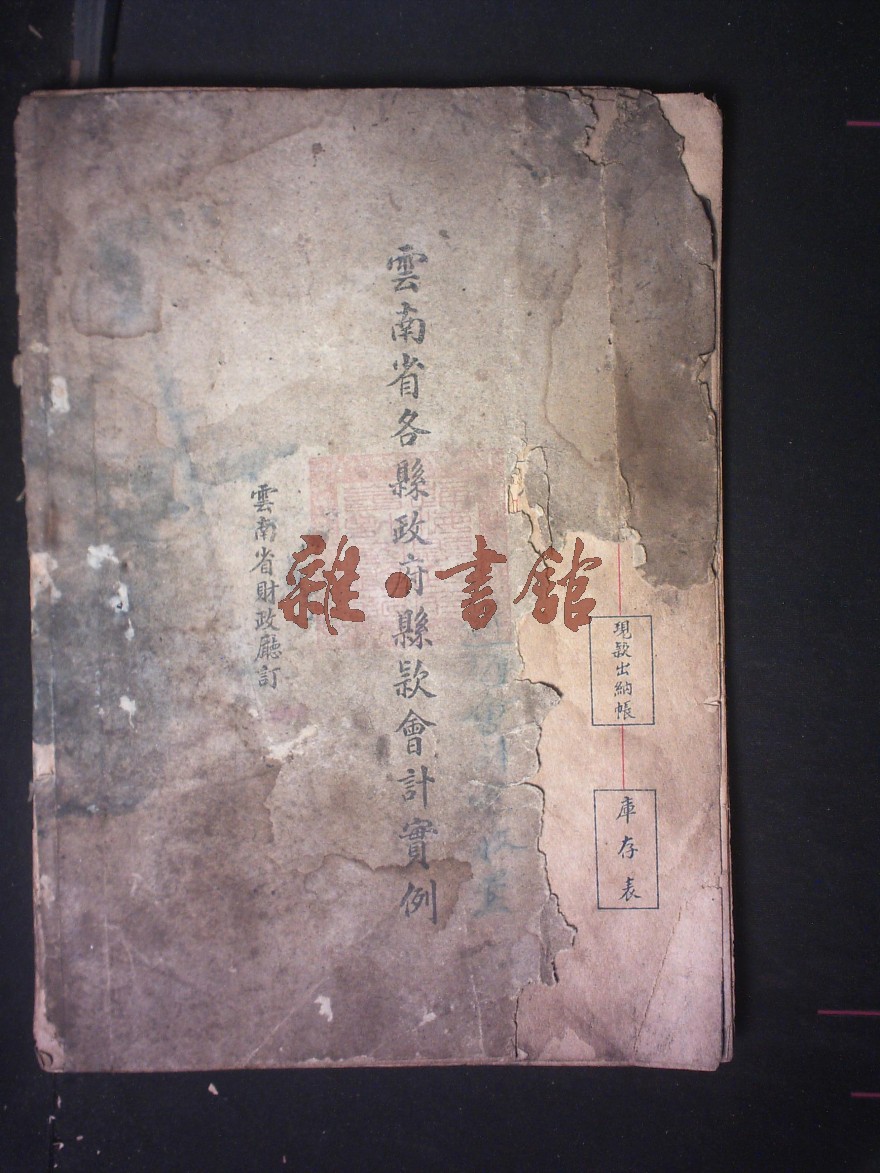 現款出納帳
庫存表
雲南省各縣政府縣款會計實例
雲南省財政廳訂
雜·書館